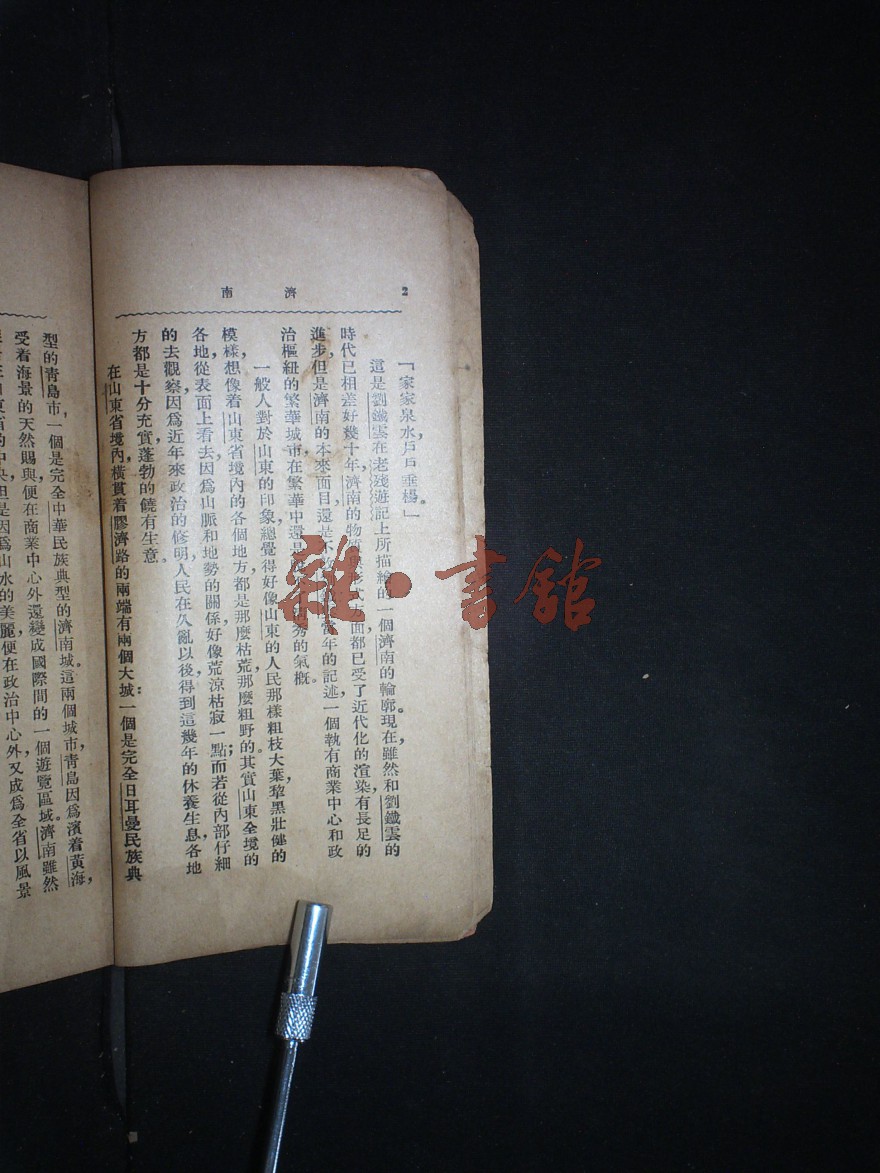 2
濟南
「家家泉水，戶戶垂楊。」
這是劉鐵雲在老殘遊記上所描繪的一個濟南的輪廓。現在，雖然和劉鐵雲的
時代已相差好幾十年，濟南的物質 面都已受了近代化的渲染，有長足的
進步，但是濟南的本來面目，還是不 當年的記述，一個執有商業中心和政
治樞紐的繁華城市，在繁華中還是 秀的氣概。
一般人對於山東的印象，總覺得好像山東的人民那樣粗枝大葉，犂黑壯健的
模樣，想像着山東省境內的各個地方，都是那麼枯荒，那麼粗野的。其實山東全境的
各地，從表面上看去，因爲山脈和地勢的關係，好像荒涼枯寂一點；而若從內部仔細
的去觀察，因爲近年來政治的修明，人民在久亂以後，得到這幾年的休養生息，各地
方都是十分充實，蓬勃的饒有生意。
在山東省境內，橫貫着膠濟路的兩端，有兩個大城：一個是完全日耳曼民族典
型的青島市，一個是完全中華民族典型的濟南城。這兩個城市，青島因爲濱着黃海，
受着海景的天然賜與，便在商業中心外，還變成國際間的一個遊覽區域。濟南雖然
的中央，但是因爲山水的美麗，便在政治中心外，又成爲全省以風景
雜·書館